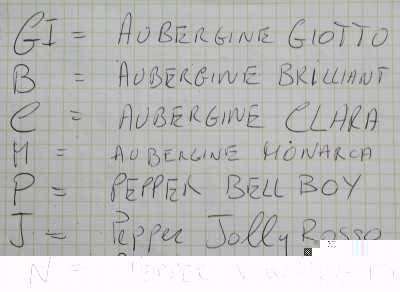 GI = AUBERGINE GIOTTO
B = AUBERGINE BRILLIANT
C = AUBERGINE CLARA
M = AUBERGINE MONARCA
P = PEPPER BELL BOY
J = Pepper Jolly Rosso
N = PEPPER